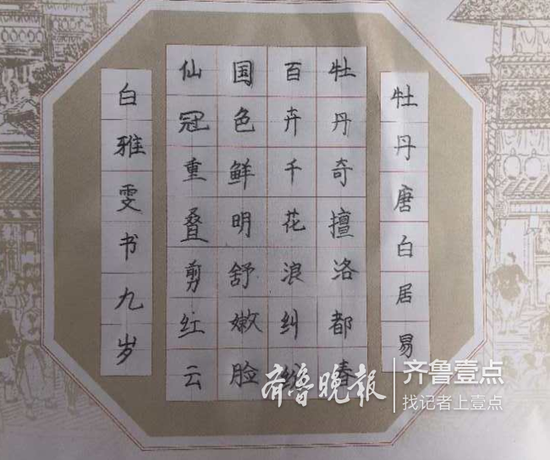 牡丹唐白居易
牡丹奇擅洛都春
百卉千花浪纠纷
国色鲜明舒嫩脸
仙冠重叠剪红云
白雅雯书九岁
齐鲁晚报
齐鲁壹点
找记者上壹点